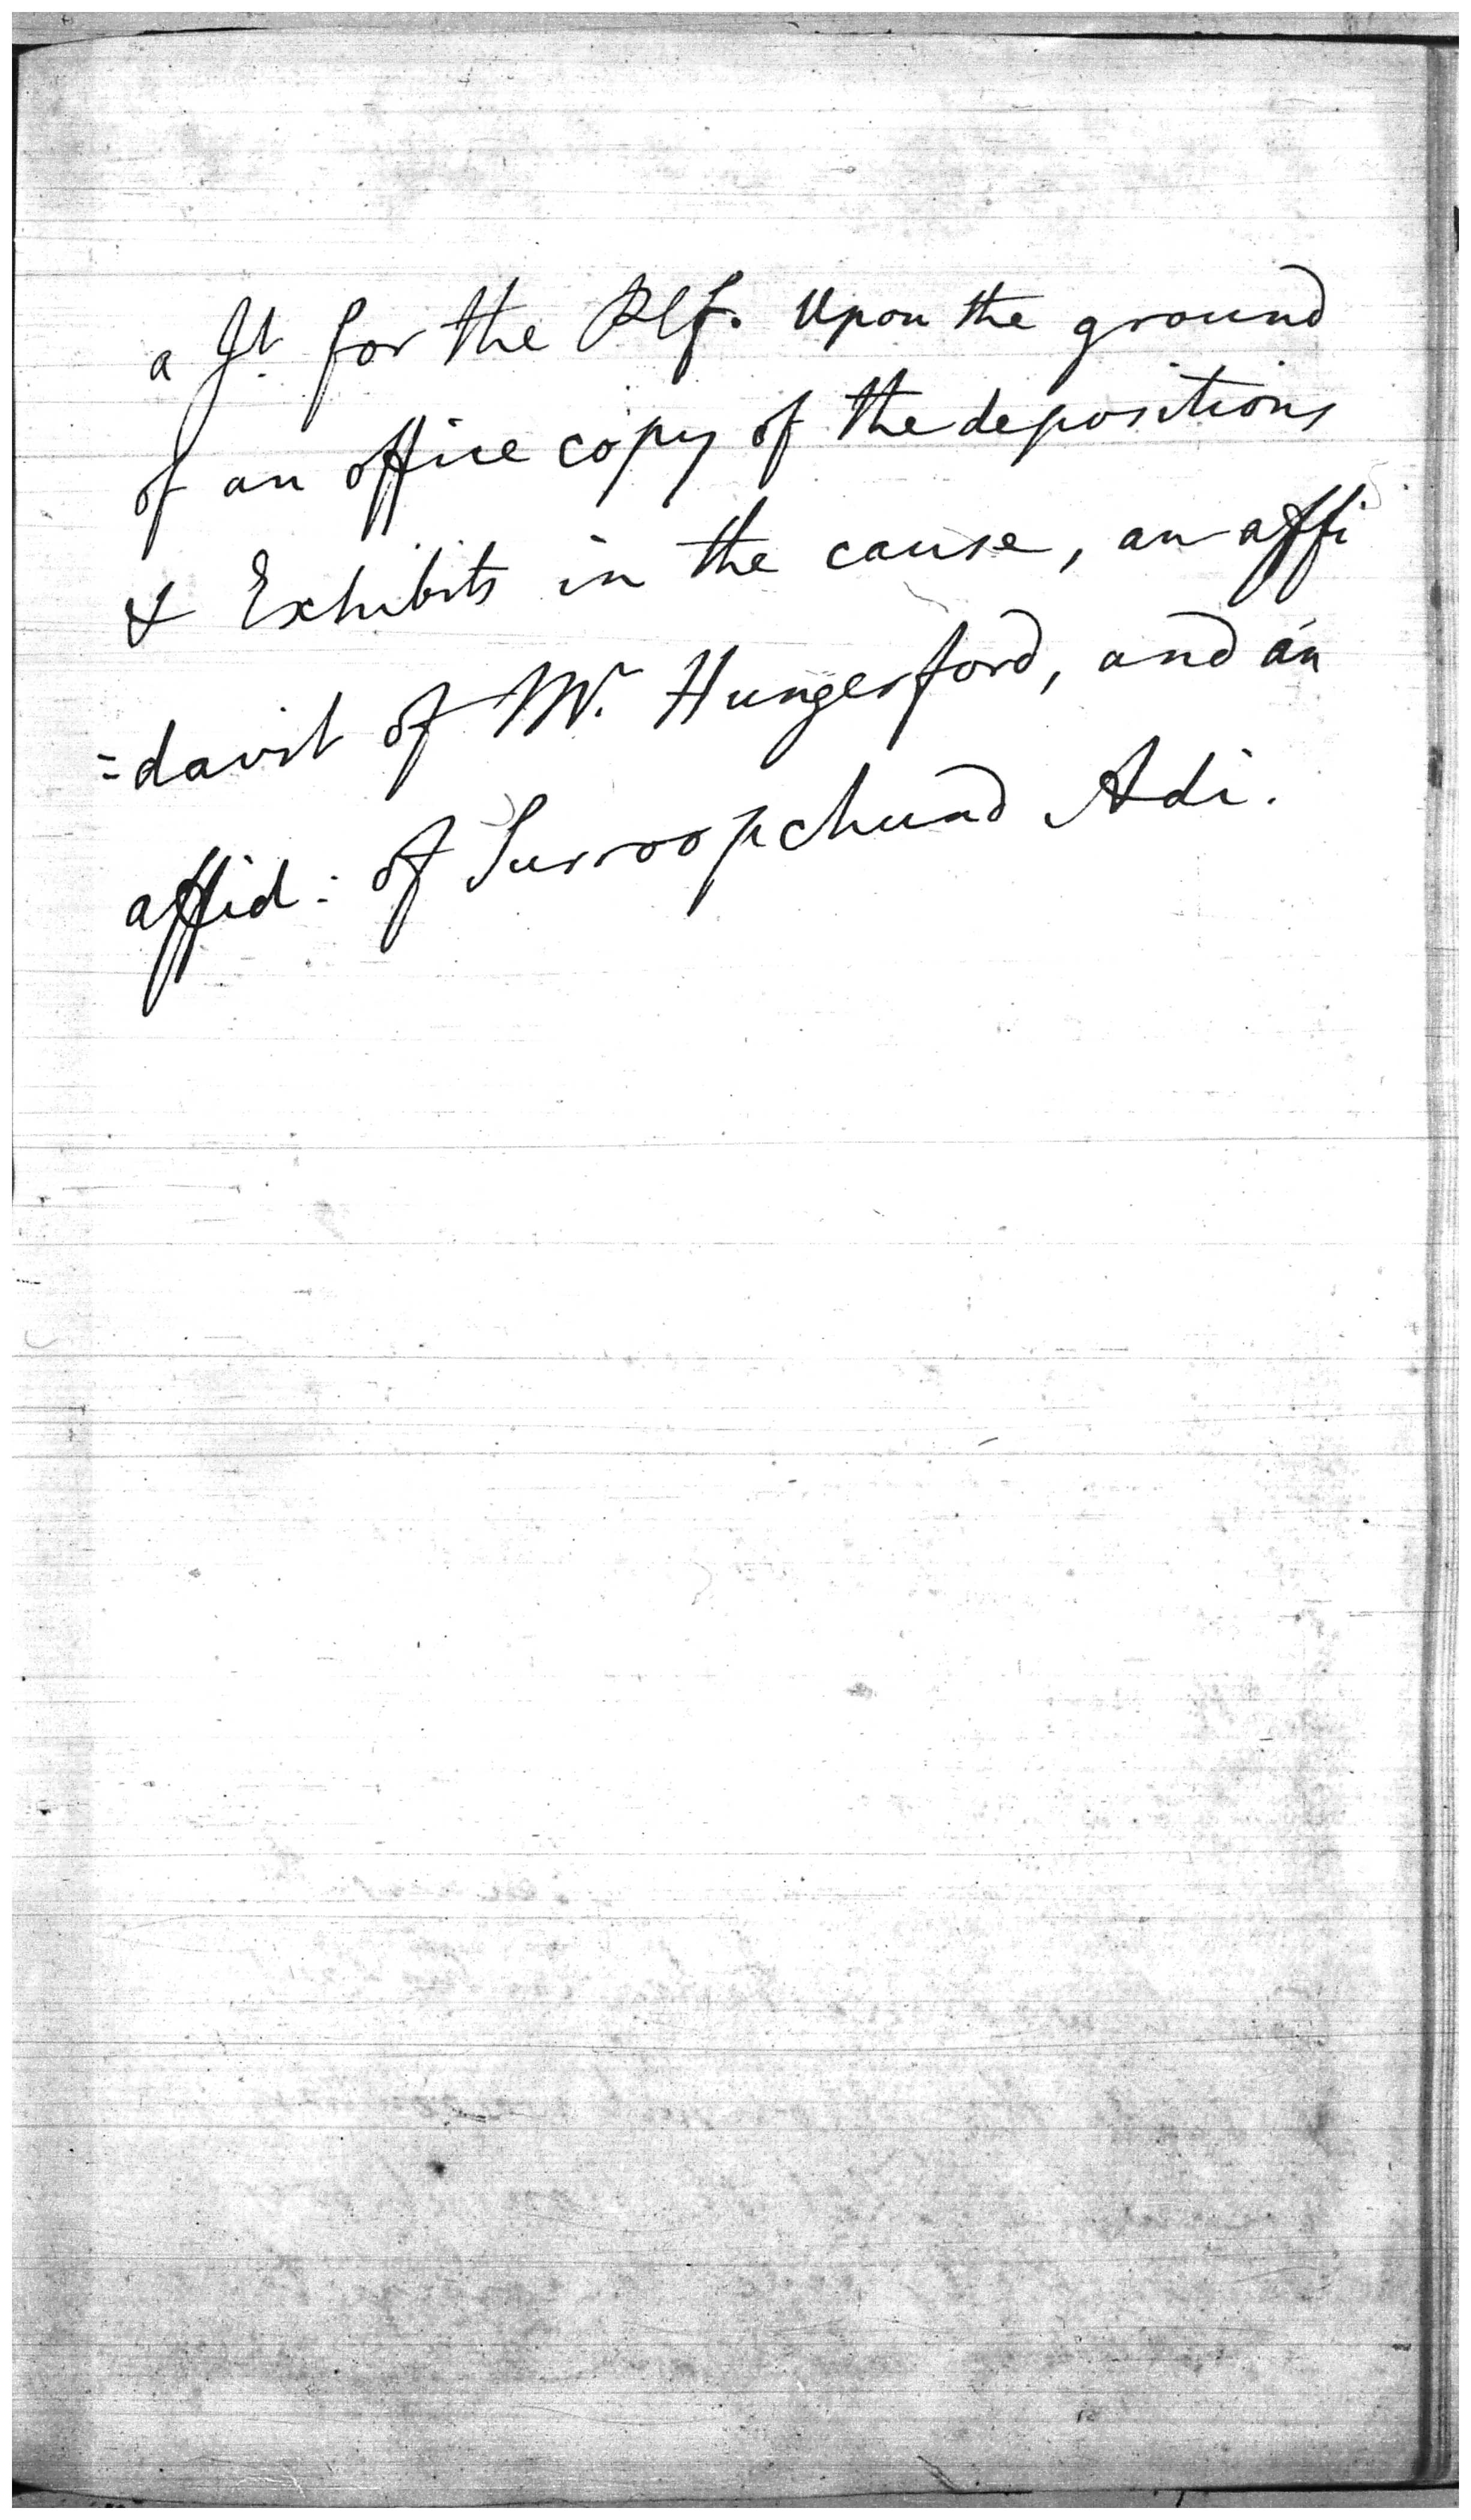 a Jt. for the Plf. Upon the ground
of an office copy of the depositions
& Exhibits in the cause, an affi
=davit of Mr. Hungerford, and an
affid: of Surroopchund Adi.